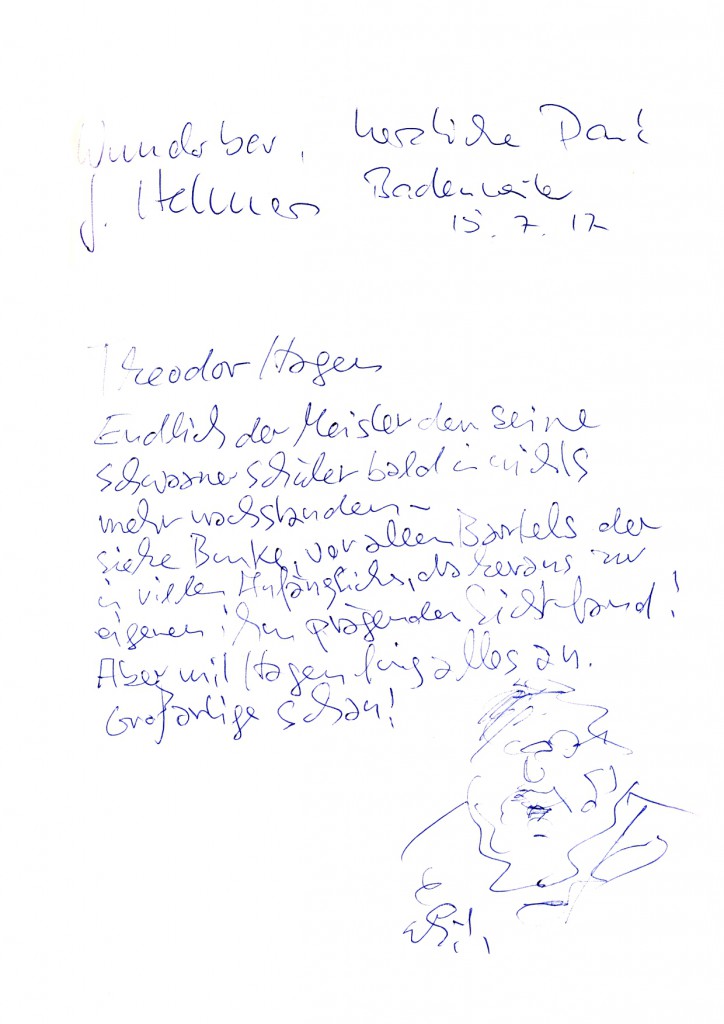 Wunderbar, herzliche Dank
J. Helmers Badenweiler
15. 7. 17
Theodor Hagen
Endlich der Meister den seine
Schwaaner Schüler bald in nichts
mehr nachstanden –
siehe Bunke, vor allen Bartels der
in vielen Anfänglichs, daheraus zur
eigenen ihn prägenden Sicht fand!
Aber mit Hagen fing alles an.
Großartige Schau!